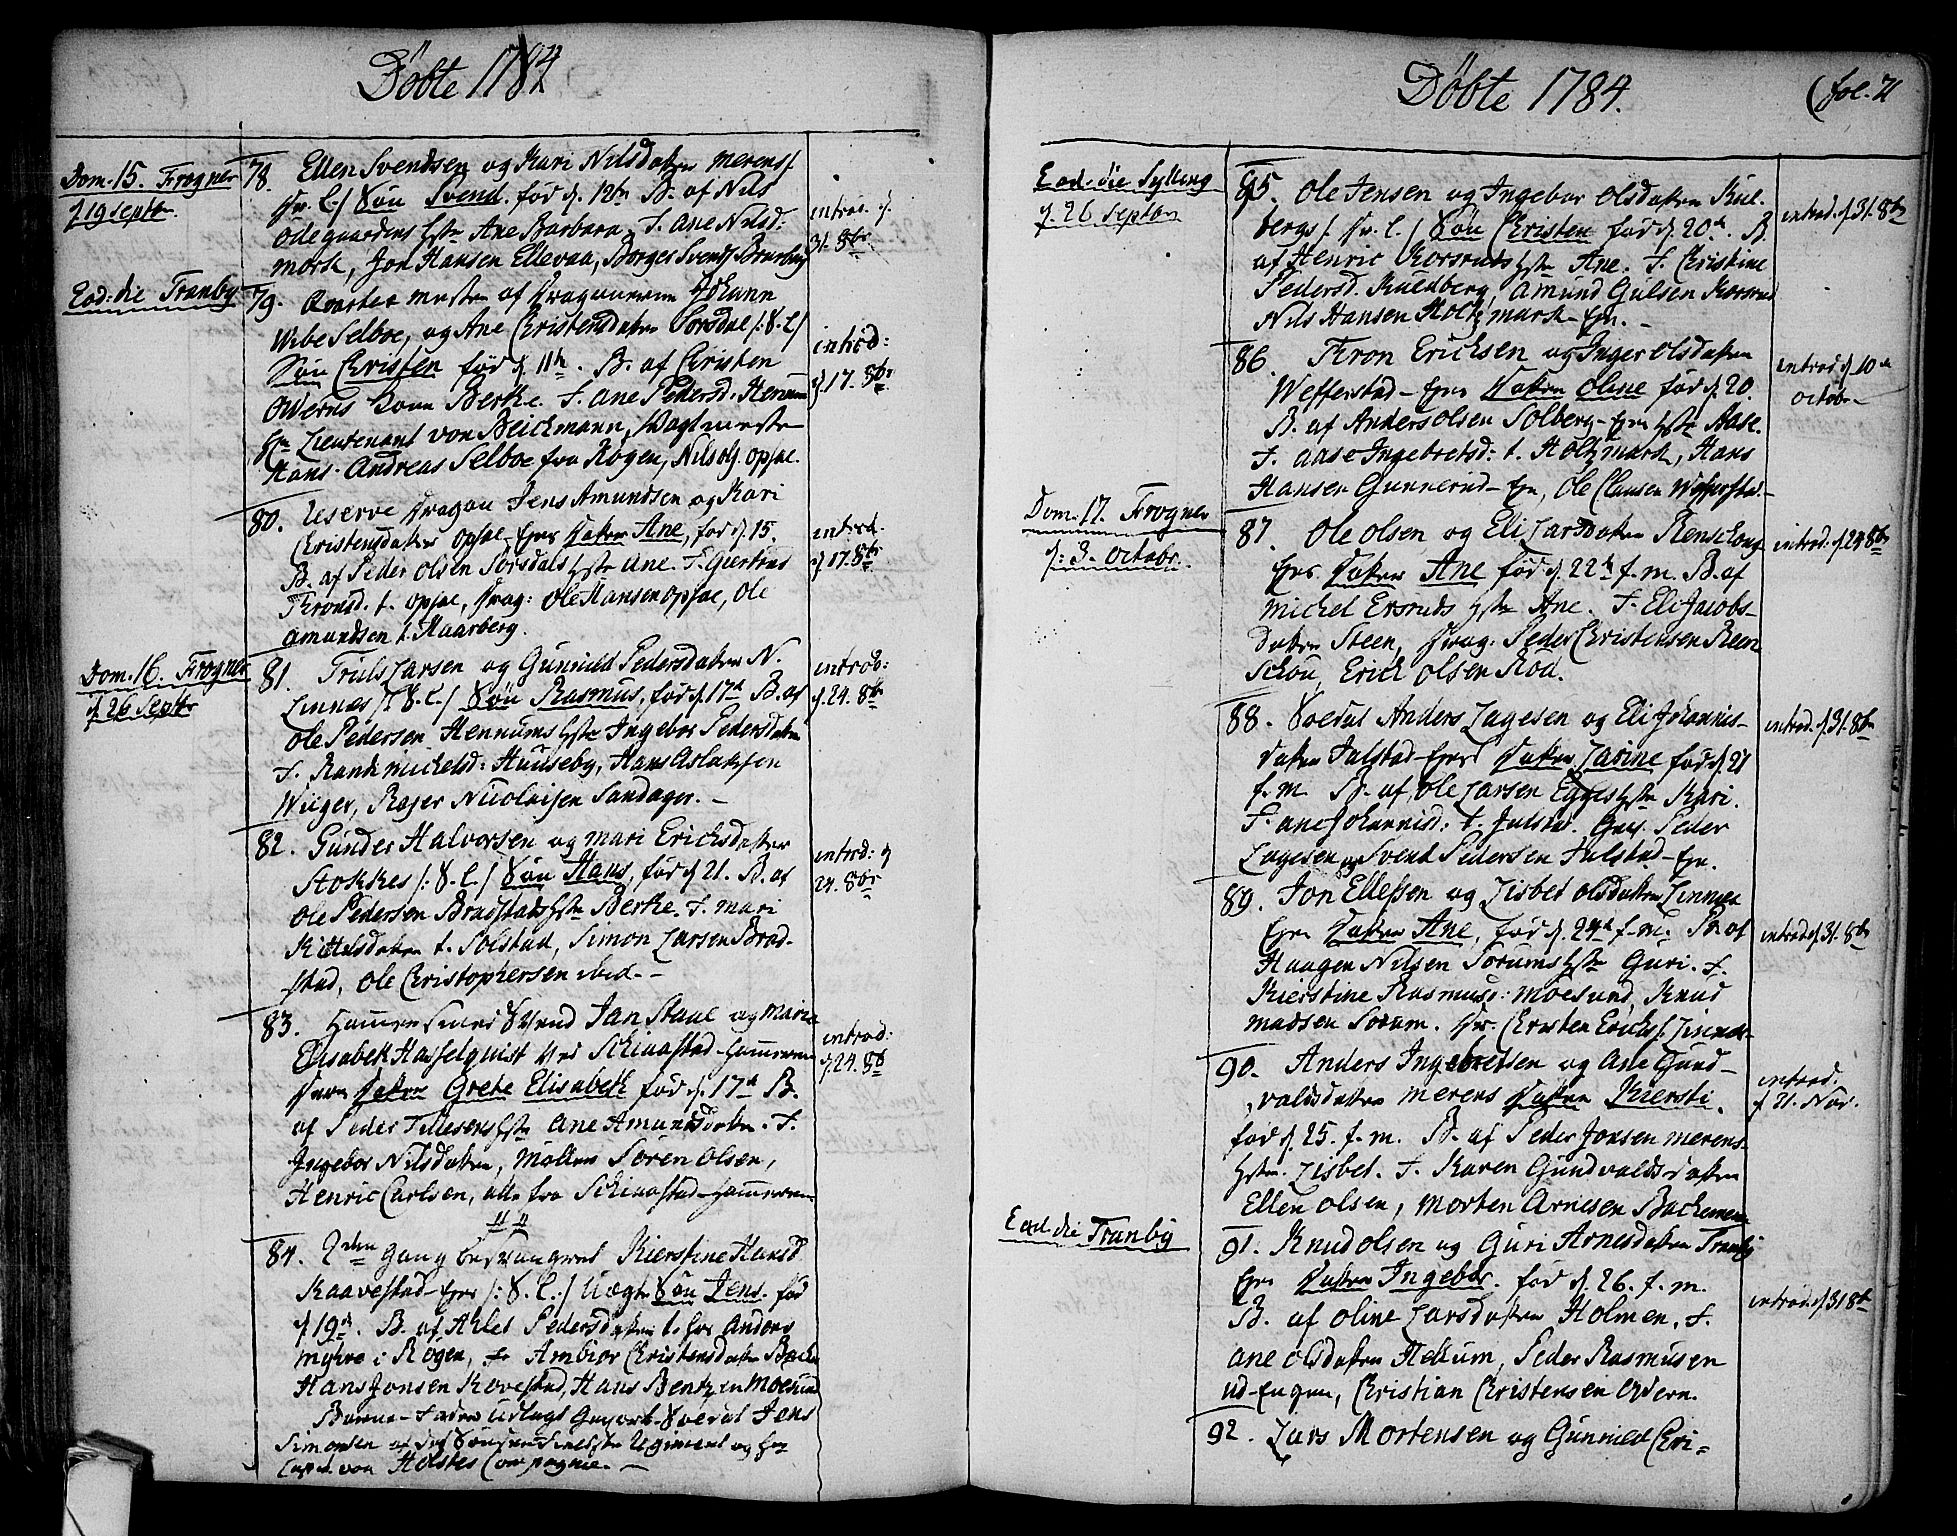 Döbte 1784
Dom. 15. Frogner
d. 19 Septbr.
78. Ellen Svendsen og Kari Nilsdatter Merens/
Sv. L./ Søn Svend. fød d. 12te B. af Nils
Odegaardens Hstr Ane Barbara. F. Ane Nilsd:
Mork, Jon Hansen Ellevaa, Borger Svends
introd. d.
31. 8br.
Eod: die Tranby
79. Qvarteer mester af Dragonerne Johann
Wibe Selboe, og Ane Christensdatter Sorsdal /: S. L/
Søn Christen fød d. 11te. B. af Christen
Overns Kone Berthe. F. Ane Pedersd. Hennum
Hr Lieutenant von Beichmann, Wagtmester
Hans Andreas Selboe fra Røgen, Nils Ols. Opsae.
introd:
d. 17. 8br
80. Reserve Dragon Jens Amundsen og Kari
Christensdatter Opsae Ejer Datter Ane, fød d. 15.
B. af Peder Olsen Sorsdals Hstr Ane. F. Giertrus
Thronsd. t. Opsae, Drag: Ole Hansen Opsae, Ole
Amundsen t. Haarberg.
introd.
d. 17. 8br
Dom. 16. Frogner
d. 26 Septbr
81. Truls Larsen og Gunnild Pedersdatter N.
Linnes /: S. L./ Søn Rasmus, fød d. 17de B. af
Ole Pedersen Hennums Hstr Ingebor Pedersdatter
F. Randi Michelsd: Huuseby, Hans Aslaksen
Wiiger, Rejer Nicolaisen Sandager. -
introd:
d. 24. 8br
82. Gunder Halvorsen og Mari Ericksdatter
Stokkes /: S. L./ Søn Hans, fød d. 21. B. af
Ole Pedersen Bradstads Hstr Berthe. F. Mari
Kittelsdatter t. Solstad, Simon Larsen Brad-
stad, Ole Christophersen ibid. -
introd: d
24. 8br
83. Hammersmed Svend Jan Staul og Maria
Elisabeth Hasselquist ved Schinastad Hammeren
Deres Datter Grete Elisabeth fød d. 17de B.
af Peder Tillesens Hstr Ane Amundsdatter. F.
Ingebor Nilsdatter, Møller Søren Olsen,
Henric Carlsen, alle fra Schinastad Hammeren
introd:
d. 24. 8br
84. 2den Gang besvangret Kierstine Hansd
Raavestad Ejer /: S. L./ Uægte Søn Jens. fød
d. 19de. B. af Ahlet Pedersdatter t. hos Anders
Myhre i Røgen, F. Ambiør Christensdatter
Hans Jonsen Kovestad, Hans Bentzen Moesund
Barne-Fader udlagt Soldat Jens
Simonsen af det Søndenfieldske Regiment og Hr
Capt. von Holstes Compagnie. -
Döbte 1784.
(fol. 71
Eod: die Sylling
d. 26 Septbr
85. Ole Jensen og Ingebor Olsdatter Kul-
bergs/ Sv. L./ Søn Christen fød d. 20de. B.
af Henric Korsruds Hstr Ane. F. Christine
Pedersd. Kuldberg, Amund Gulsen Korsrud
Nils Hansen Holtzmark Ejer. -
introd. d. 31. 8br
86. Thron Ericksen og Inger Olsdatter
Wefferstad Ejer Datter Oline fød d. 20.
B. af Anders Olsen Solberg Ejer Hstr Aase.
F. Aase Ingebretsd: t. Holtzmark, Hans
Hansen Gunnerud Ejer, Ole Clausen Wefferstad -
introd d. 10de
octobr.
Dom. 17. Frogner
d. 3. Octobr.
87. Ole Olsen og Eli Larsdatter Renschoug
Ejer Datter Ane fød d. 22de f. m. B. af
Michel Ersruds Hstr Ane. F. Eli Jacobs-
datter Steen, Drag: Peder Christensen Ren
Schou, Erich Olsen Rod.
introd. d. 24 8br
88. Soldat Anders Lagesen og Eli Johannis-
datter Julstad Ejer Datter Larine fød d. 21
f. m. B. af Ole Larsen Egges Hstr Kari.
F. Ane Johannisd: t. Julstad. Peder
Lagesen og Svend Pedersen Julstad Ejer.
introd. d. 31. 8br
89. Jon Ellefsen og Lisbet Olsdatter Linnes
Ejer Datter Ane, fød d. 24de f. m. B. af
Haagen Nilsen Sorums Hstr Guri. F.
Kierstine Rasmusd: Moesund, Knud
Madsen Sorum. Sv. Christen Ericks. Linnes-
introd d. 31. 8br
90. Anders Ingebretsen og Ane Gund-
valdsdatter Merens Datter Kiersti.
fød d. 25. f. m. B. af Peder Jonsen Merens
Hstr. Lisbet. F. Karen Gundvaldsdatter
Ellen Olsen, Morten Arnesen
introd.
d. 21. Nov.
Eod: die Tranby
91. Knud Olsen og Guri Arnesdatter Tranby
Ejer Datter Ingebor. fød d. 26. f. m.
B. af Oline Larsdatter Holmen, F.
Ane Olsdatter Hekum, Peder Rasmusen
ud-Engen, Christian Christensen Overn.
introd. d. 31 8br
92. Lars Mortensen og Gunnild Eri-